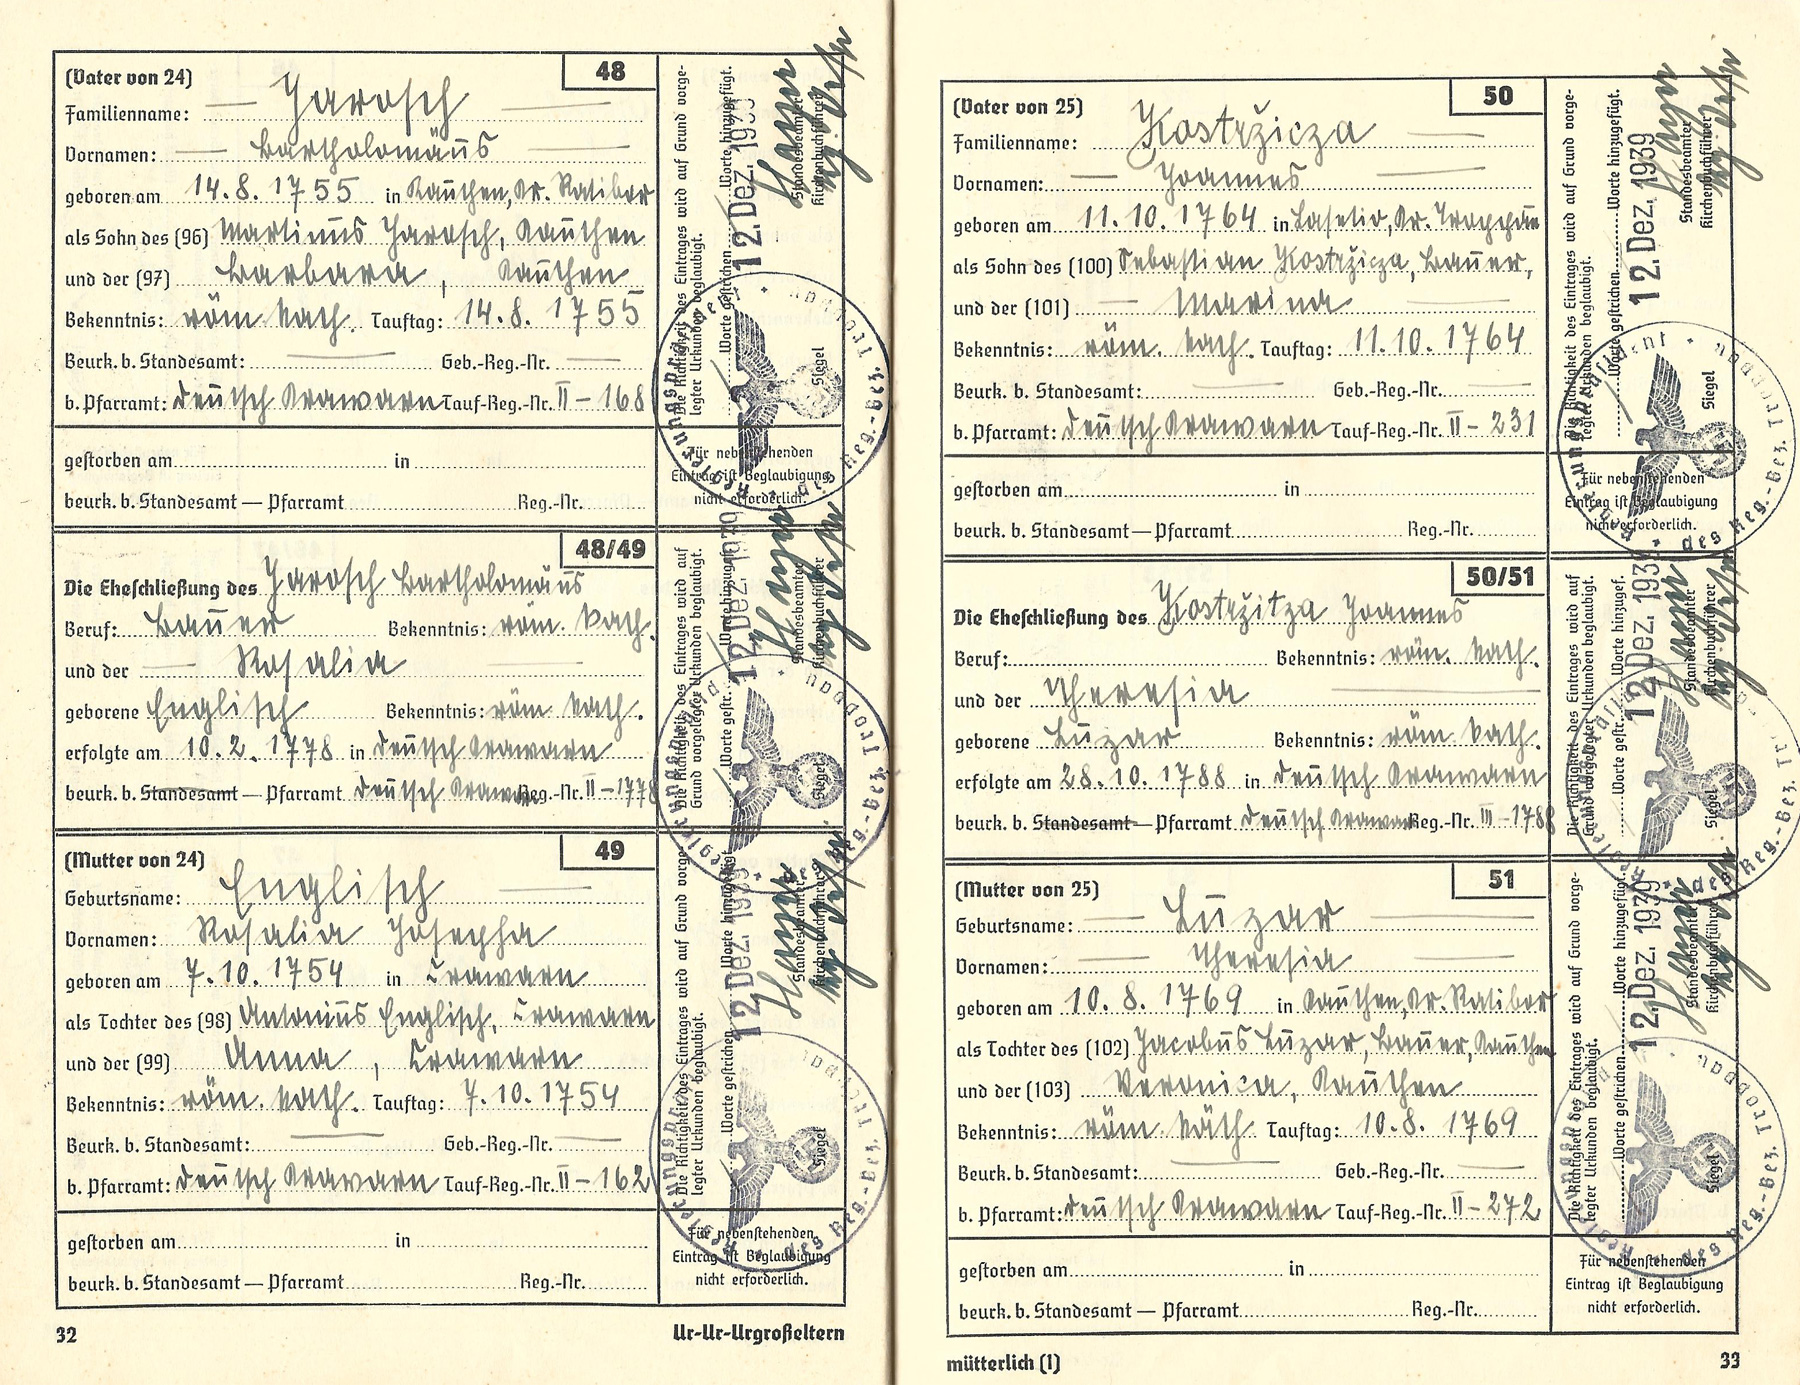 48
(Vater von 24)
Familienname: Jarosch
Vornamen: Bartholomäus
geboren am 14.8.1755 in Kauthen, Kr. Ratibor
als Sohn des (96) Martinus Jarosch, Kauthen
und der (97) Barbara, Kauthen
Bekenntnis: röm. kath. Tauftag: 14.8.1755
Beurk. b. Standesamt: Geb.-Reg.-Nr.
b. Pfarramt: Deutsch Krawarn Tauf-Reg.-Nr. II – 168
gestorben am in
beurk. b. Standesamt — Pfarramt Reg.-Nr.
Die Richtigkeit des Eintrages wird auf Grund vorge-
legter Urkunden beglaubigt.
Worte gestrichen Worte hinzugefügt.
12. Dez. 1939
Standesbeamter
Kirchenbuchführer
Siegel
Für nebenstehenden
Eintrag ist Beglaubigung
nicht erforderlich.
Der Regierungspräsident des Reg.-Bez. Troppau
48/49
Die Eheschließung des Jarosch Bartholomäus
Beruf: Bauer Bekenntnis: röm. kath.
und der Rosalia
geborene Englisch Bekenntnis: röm. kath.
erfolgte am 10.2.1778 in Deutsch Krawarn
beurk. b. Standesamt — Pfarramt Deutsch Krawarn Reg.-Nr. II – 1778
Die Richtigkeit des Eintrages wird auf
Grund vorgelegter Urkunden beglaubigt.
Worte gestr. Worte hinzugef.
12. Dez. 1939
Standesbeamter
Kirchenbuchführer
Siegel
49
(Mutter von 24)
Geburtsname: Englisch
Vornamen: Rosalia Josepha
geboren am 7.10.1754 in Krawarn
als Tochter des (98) Antonius Englisch, Krawarn
und der (99) Anna, Krawarn
Bekenntnis: röm. kath. Tauftag: 7.10.1754
Beurk. b. Standesamt: Geb.-Reg.-Nr.
b. Pfarramt: Deutsch Krawarn Tauf-Reg.-Nr. II – 162
gestorben am in
beurk. b. Standesamt — Pfarramt Reg.-Nr.
Die Richtigkeit des Eintrages wird auf Grund vorge-
legter Urkunden beglaubigt.
Worte gestrichen Worte hinzugefügt.
12. Dez. 1939
Standesbeamter
Kirchenbuchführer
Siegel
Für nebenstehenden
Eintrag ist Beglaubigung
nicht erforderlich.
32
Ur-Ur-Urgroßeltern
50
(Vater von 25)
Familienname: Kostržicza
Vornamen: Joannes
geboren am 11.10.1764 in Kr. Troppau
als Sohn des (100) Sebastian Kostržicza, Bauer,
und der (101) Marina
Bekenntnis: röm. kath. Tauftag: 11.10.1764
Beurk. b. Standesamt: Geb.-Reg.-Nr.
b. Pfarramt: Deutsch Krawarn Tauf-Reg.-Nr. II – 231
gestorben am in
beurk. b. Standesamt — Pfarramt Reg.-Nr.
Die Richtigkeit des Eintrages wird auf Grund vorge-
legter Urkunden beglaubigt.
Worte gestrichen Worte hinzugefügt.
12. Dez. 1939
Standesbeamter
Kirchenbuchführer
Siegel
Für nebenstehenden
Eintrag ist Beglaubigung
nicht erforderlich.
50/51
Die Eheschließung des Kostržitza Joannes
Beruf: Bekenntnis: röm. kath.
und der Theresia
geborene Luzar Bekenntnis: röm. kath.
erfolgte am 28.10.1788 in Deutsch Krawarn
beurk. b. Standesamt — Pfarramt Deutsch Krawarn Reg.-Nr. III – 1788
Die Richtigkeit des Eintrages wird auf
Grund vorgelegter Urkunden beglaubigt.
Worte gestr. Worte hinzugef.
12. Dez. 1939
Standesbeamter
Kirchenbuchführer
Siegel
51
(Mutter von 25)
Geburtsname: Luzar
Vornamen: Theresia
geboren am 10.8.1769 in Kauthen, Kr. Ratibor
als Tochter des (102) Jacobus Luzar, Bauer, Kauthen
und der (103) Veronica, Kauthen
Bekenntnis: röm. käth Tauftag: 10.8.1769
Beurk. b. Standesamt: Geb.-Reg.-Nr.
b. Pfarramt: Deutsch Krawarn Tauf-Reg.-Nr. II – 272
gestorben am in
beurk. b. Standesamt — Pfarramt Reg.-Nr.
Die Richtigkeit des Eintrages wird auf Grund vorge-
legter Urkunden beglaubigt.
Worte gestrichen Worte hinzugefügt.
12. Dez. 1939
Standesbeamter
Kirchenbuchführer
Siegel
Für nebenstehenden
Eintrag ist Beglaubigung
nicht erforderlich.
mütterlich (1)
33